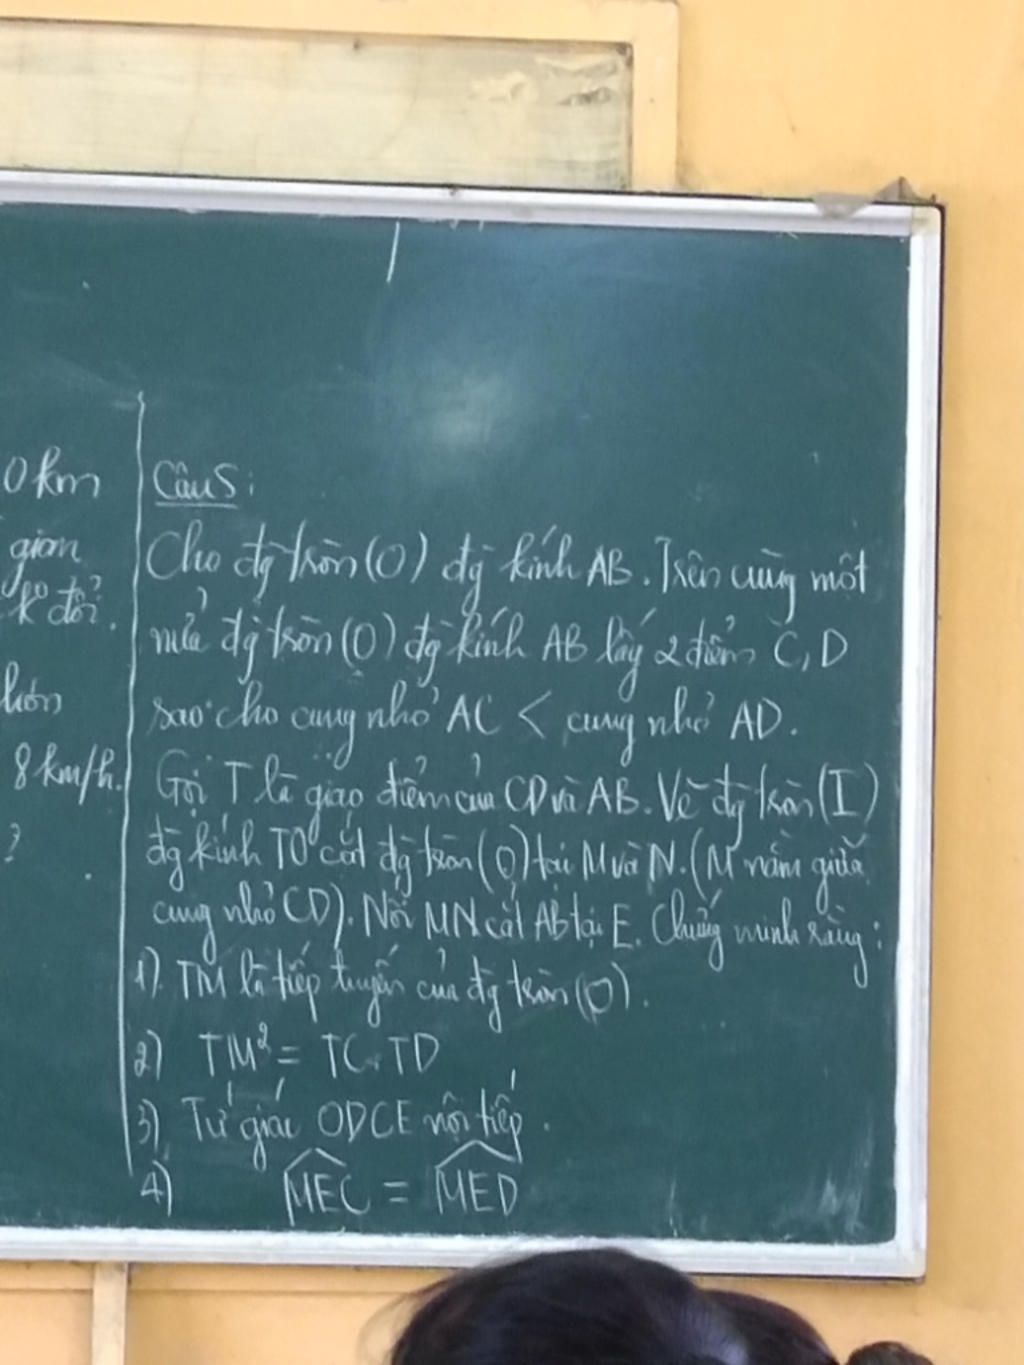 0 km
gian
k° đổi.
hơn
8 km/h.
?
Câu 5:
Cho đg tròn (O) đg kính AB. Trên cùng một
nửa đg tròn (O) đg kính AB lấy 2 điểm C, D
sao cho cung nhỏ AC < cung nhỏ AD.
Gọi T là giao điểm của CD và AB. Vẽ đg tròn (I)
đg kính TO cắt đg tròn (O) tại M và N. (M nằm giữa
cung nhỏ CD). Nối MN cắt AB tại E. Chứng minh rằng:
1). TM là tiếp tuyến của đg tròn (O).
2) TM² = TC.TD
3) Tứ giác ODCE nội tiếp.
4) \widehat{MEC} = \widehat{MED}